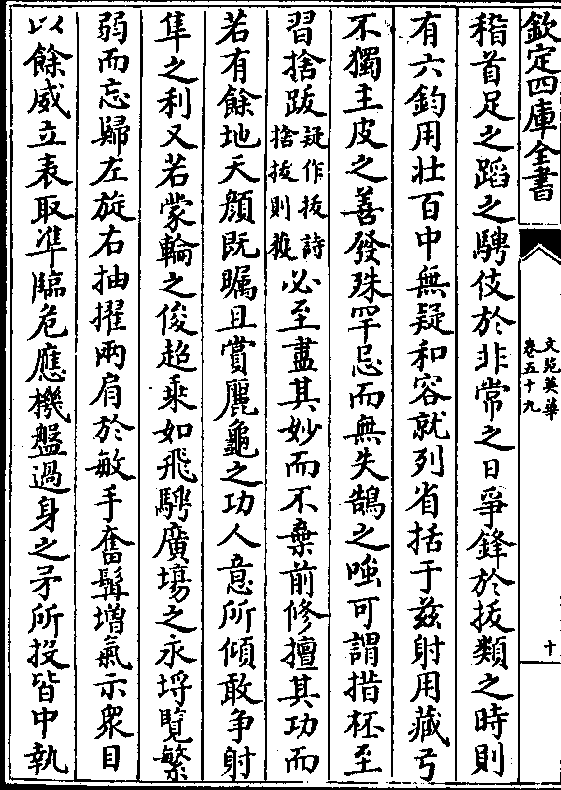 欽定四庫全書
文苑英華
卷五十九
十
稽首足之蹈之騁伎於非常之日爭鋒於拔類之時則
有六鈞用壯百中無疑和容就列省括于兹射用藏弓
不獨主皮之善發殊罕忌而無失鵠之嗤可謂措柸至
習捨跋疑作拔詩捨拔則獲必至盡其妙而不棄前修擅其功而
若有餘地天顔既矚且賞麗龜之功人意所傾敢争射
隼之利又若蒙輪之俊超乘如飛騁廣場之永埓覽繁
弱而忘歸左旋右抽擢兩肩於敏手奮髯增氣示衆目
以餘威立表取凖臨危應機盤過身之矛所投皆中執